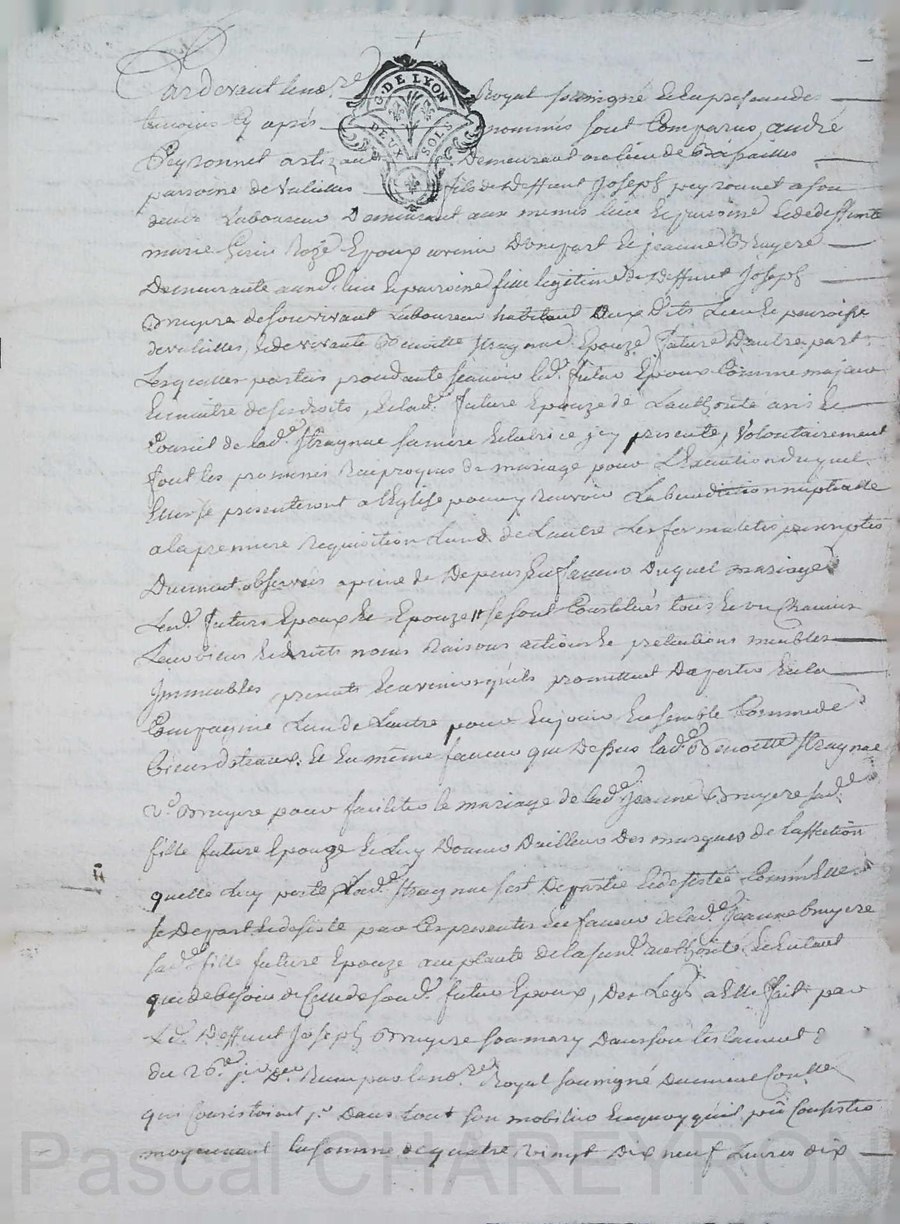 Pardevant le no.re Royal soussigné et en presence des
temoins cy après nommés sont Comparus, andré
Peyronnet artizan Demeurant au lieu de
paroisse de Valettes fils de Deffunt Joseph peyronnet a son
vivant Laboureur Demeurant aux memes lieu et paroisse et de deffunte
marie Epoux avenir D'une part et jeanne Bruyere
Demeurante aud. lieu et paroisse fille legitime de Deffunt Joseph
Bruyere de son vivant Laboureur habitant Aux Dits Lieu et paroisse
de Valettes, et de vivante Benoitte Straynac Epouze future D'autre part.
Lesquelles parties procedante scavoir led. futur Epoux Comme majeur
et maitre de ses droits, et lad. future Epouze de L'authorité avis et
Conseil de lad.e Straynac sa mere et tutrice icy presente, volontairement
sont les promesses Reciproques de mariage pour L'Execution duquel
Eux se presenteront a l'Eglise pour y Recevoir La benediction nuptialle
a la premiere Requisition L'un de L'autre Les formalités prescriptes
Duement observées a peine de Depens, En faveur Duquel mariage
Les d. futurs Epoux et Epouze se sont Constitués tous et un Chacun
Leurs biens et droits noms Raisons actions et pretentions meubles
Immeubles presents et avenir qu'ils promettent D'aporter En la
Compagnie L'un de L'autre pour En jouir Ensemble Comme de
biens dotaux: Et En même faveur que Dessus lad.e Benoitte Straynac
v.e Bruyere pour faciliter le mariage de lad.e Jeanne Bruyere sad.e
fille future Epouze et Luy Donner D'ailleurs Des marques de L'affection
quelle Luy porte, Lad.e Straynac s'est Departie et desistée Comme Elle
se Depart et desiste par Ces presentes En faveur de lad.e Jeanne bruyere
sad.e fille future Epouze acceptante de la susd. authorité et En tant
que de besoin de Celle de son d. futur Epoux, Des Legs a Elle fait par
Led. Deffunt Joseph Bruyere son mary Dans son testament
du 26.e D. Reçu par le no.re Royal soussigné Duement Controllé
qui Consistoient 1.o Dans tout son mobilier En quoy qu'il put Consister
moyennant la somme de quatre vingt Dix neuf Livres dix
G. DE LYON
DEUX SOLS
Pascal CHAREYRON